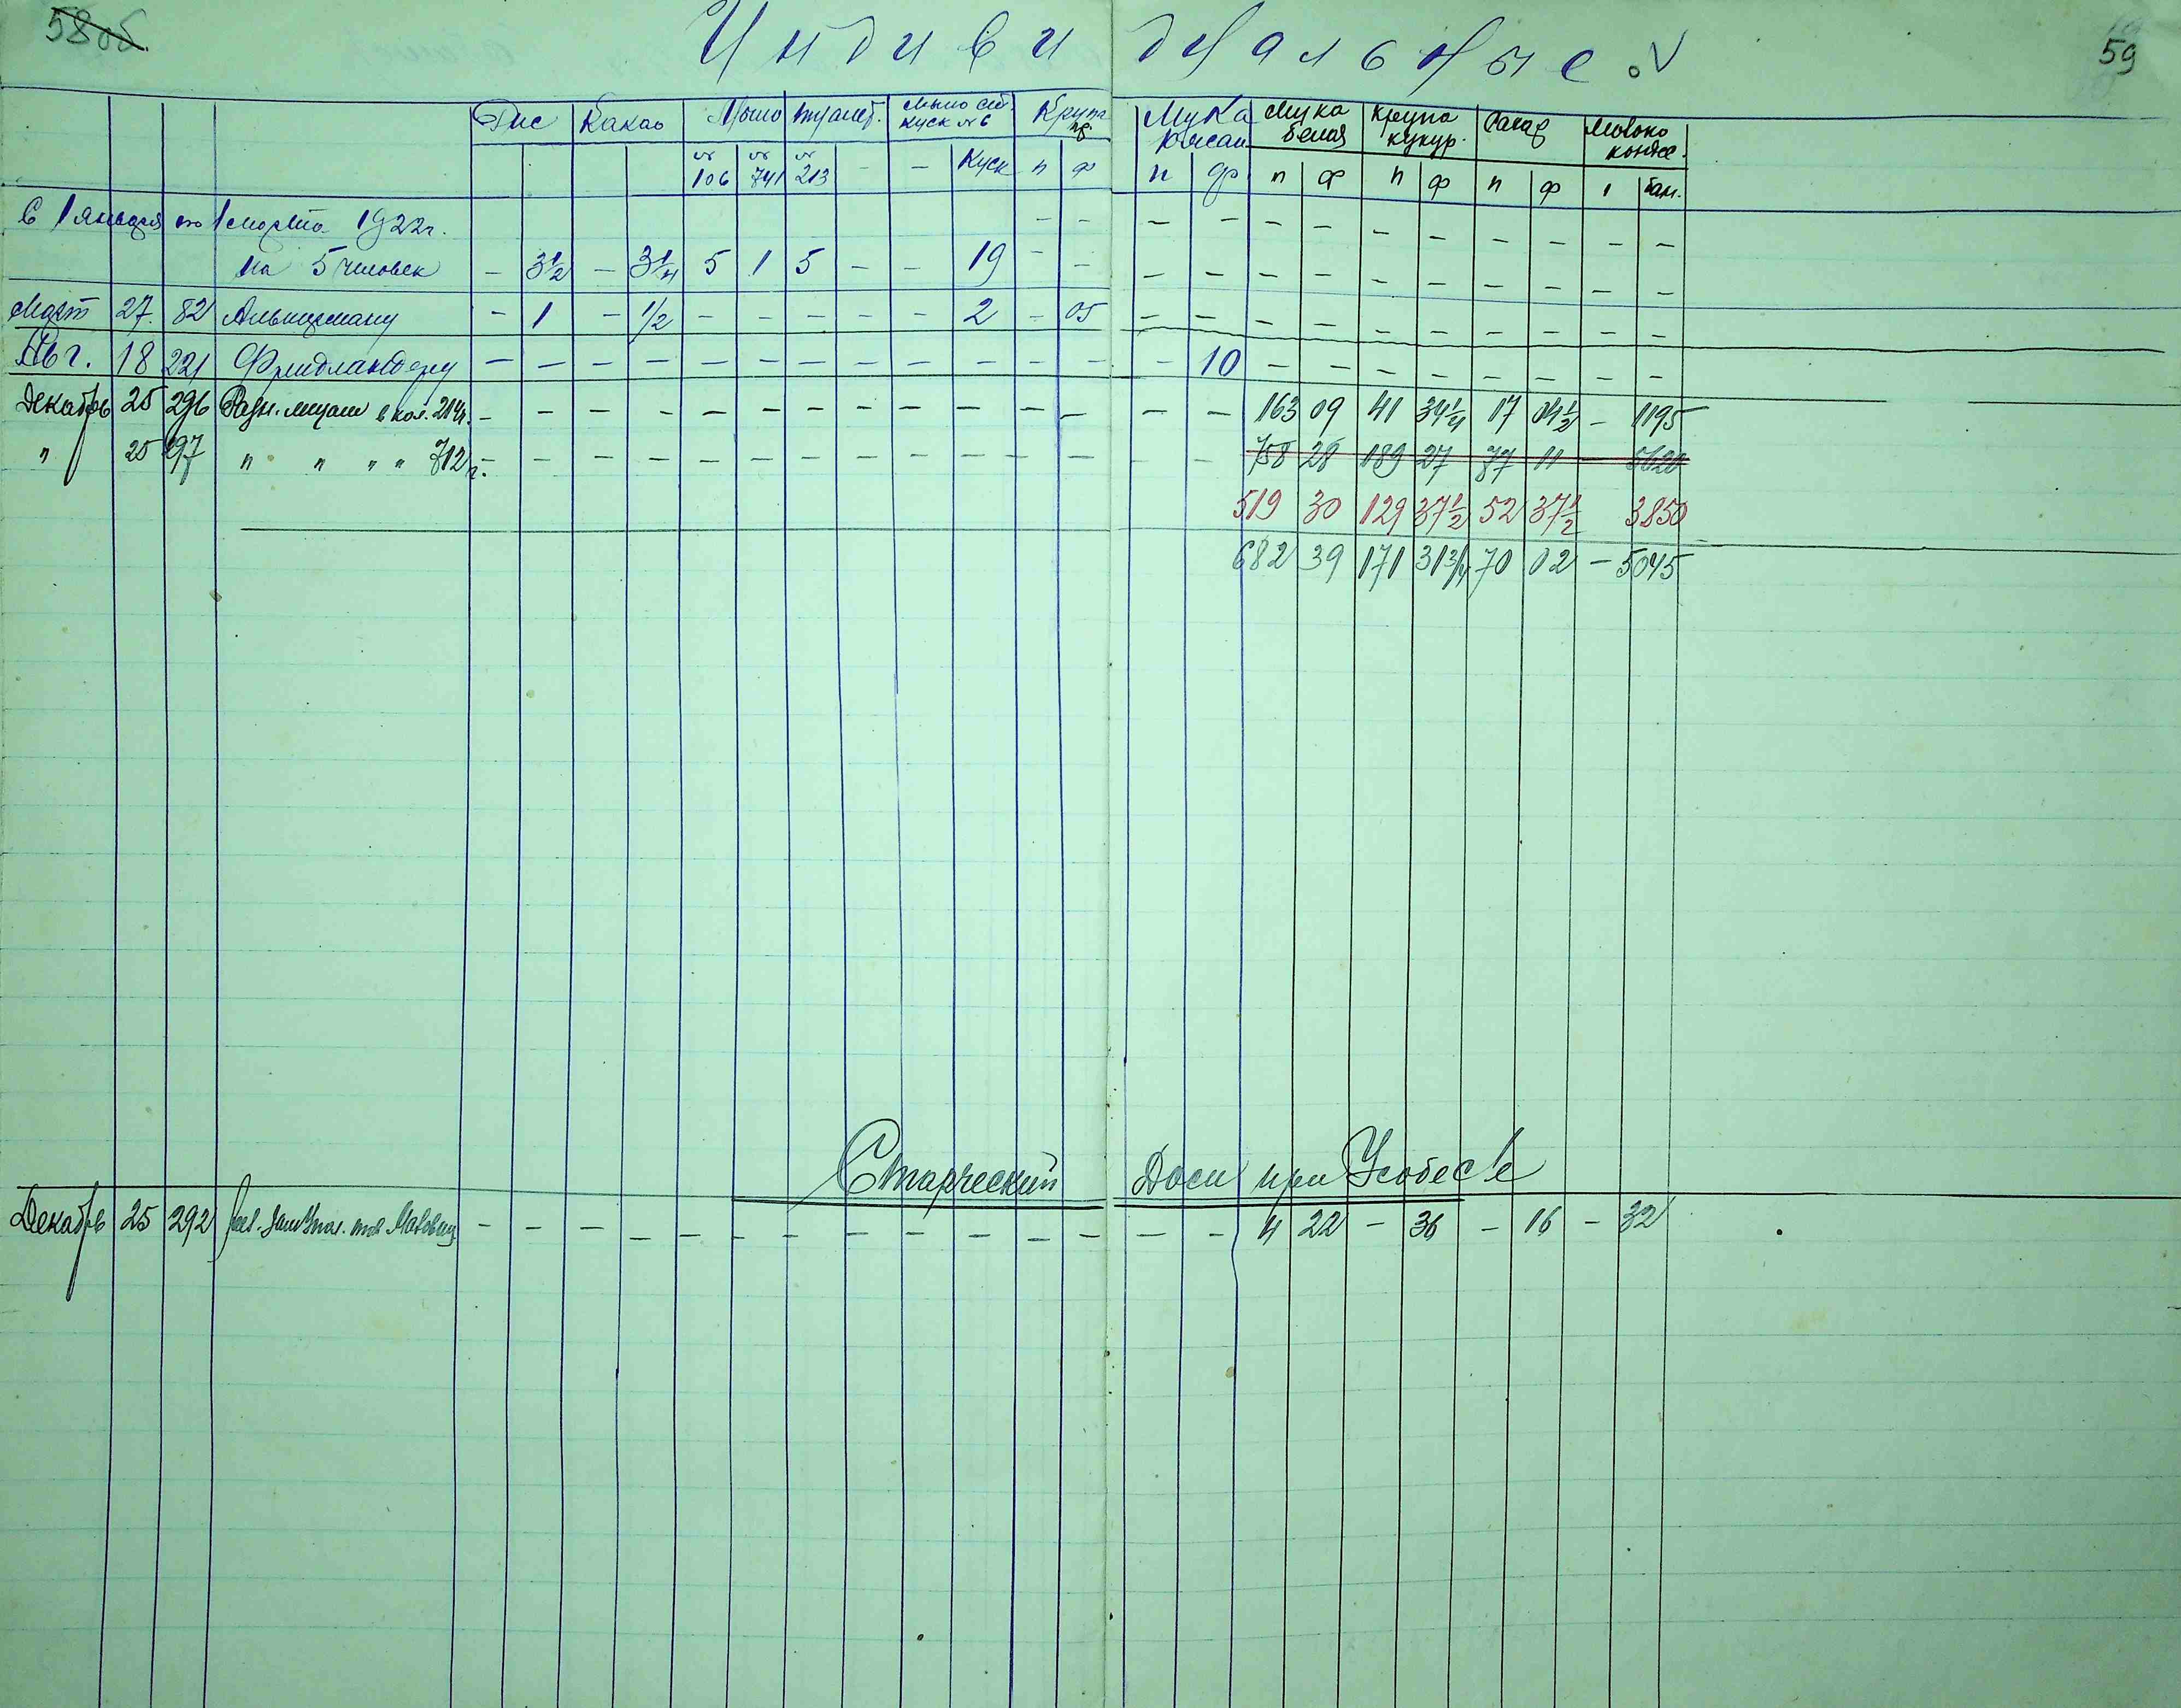 58об. 59
Индивидуальные.
Рис Какао Мыло туалет. Мыло куск №6 Крупа Мука Мука белая Крупа кукур. Сахар Молоко
№ 106 № 741 № 213 – – Куск п ф п ф п ф п ф п ф банк.
С 1 января по 1 марта 1922г. – – – – – – – – – – – –
на 5 человек – 3 1/2 – 3 1/4 5 1 5 – – 19 – – – – – – – – – – – –
Март 27. 82 – 1 – 1/2 – – – – – 2 – 05 – – – – – – – – – –
Авг. 18 221 Фридландеру – – – – – – – – – – – – – 10 – – – – – – – –
Декабрь 25 296 Разн. лицам в кол. 214ч. – – – – – – – – – – – – – – 163 09 41 34 1/4 17 04 1/2 – 1195
" 25 297 " " " " 712 ч. – – – – – – – – – – – – 758 28 189 27 77 11 – 5620
519 30 129 37 1/2 52 37 1/2 3850
682 39 171 31 3/4 70 02 – 5045
Старческий Дом при Усобес'е
Декабрь 25 292 – – – – – – – – – – – – – – 4 22 – 36 – 16 – 32